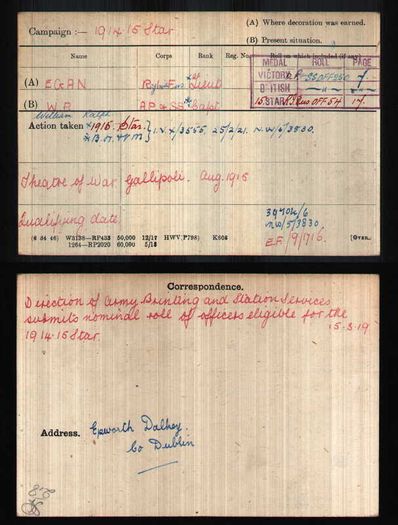 Campaign :— 1914-15 Star
(A) Where decoration was earned.
(B) Present situation.
Name Corps Rank Reg. No. Roll on which included (if any)
MEDAL ROLL PAGE
(A) EGAN Lieut VICTORY OFF 550 7
(B) W.R. A.P. & S.S. Capt BRITISH -"- -"-
William Ralph 15 STAR OFF 54 17
Action taken 1915 Star I.V.4/3555 25/2/21. N.W/5/3830.
B.W. & V.M
Theatre of War. Gallipoli. Aug 1915
Qualifying date
3970/4/6
NW/5/3830
E.F./9/1716.
(6 34 46) W3138—RP433 50,000 12/17 HWV(P798) K608 [OVER.
1264—RP2020 60,000 5/18
Correspondence.
Direction of Army Printing and Station Services
submits nominal roll of officers eligible for the
1914-15 Star. 15-3-19
Address. Epworth Dalkey.
Co Dublin